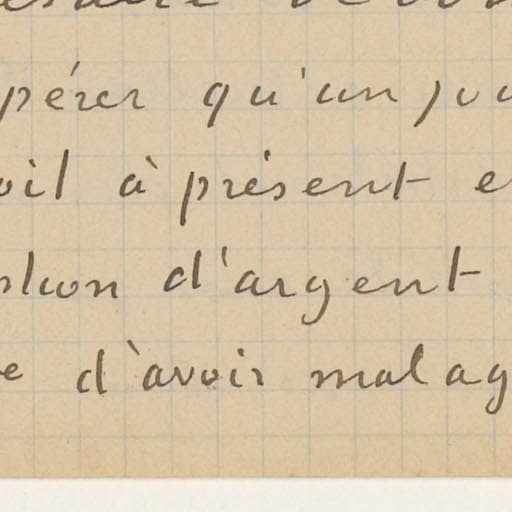 pérer qu'un jou
oil à présent e
d'argent
e d'avoir malag